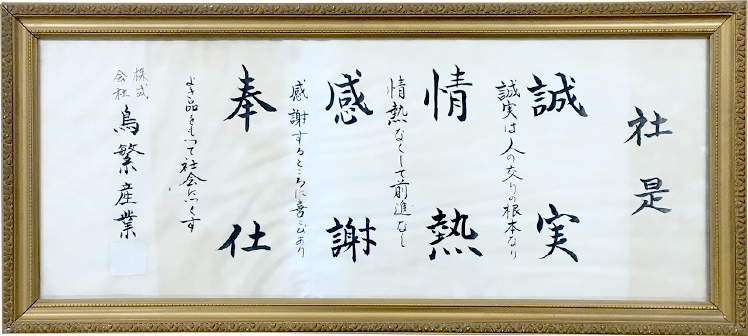 社是
誠実
誠実は人の交りの根本なり
情熱
情熱なくして前進なし
感謝
感謝するところに喜びあり
奉仕
よき品をもって社会につくす
株式会社 鳥繁産業